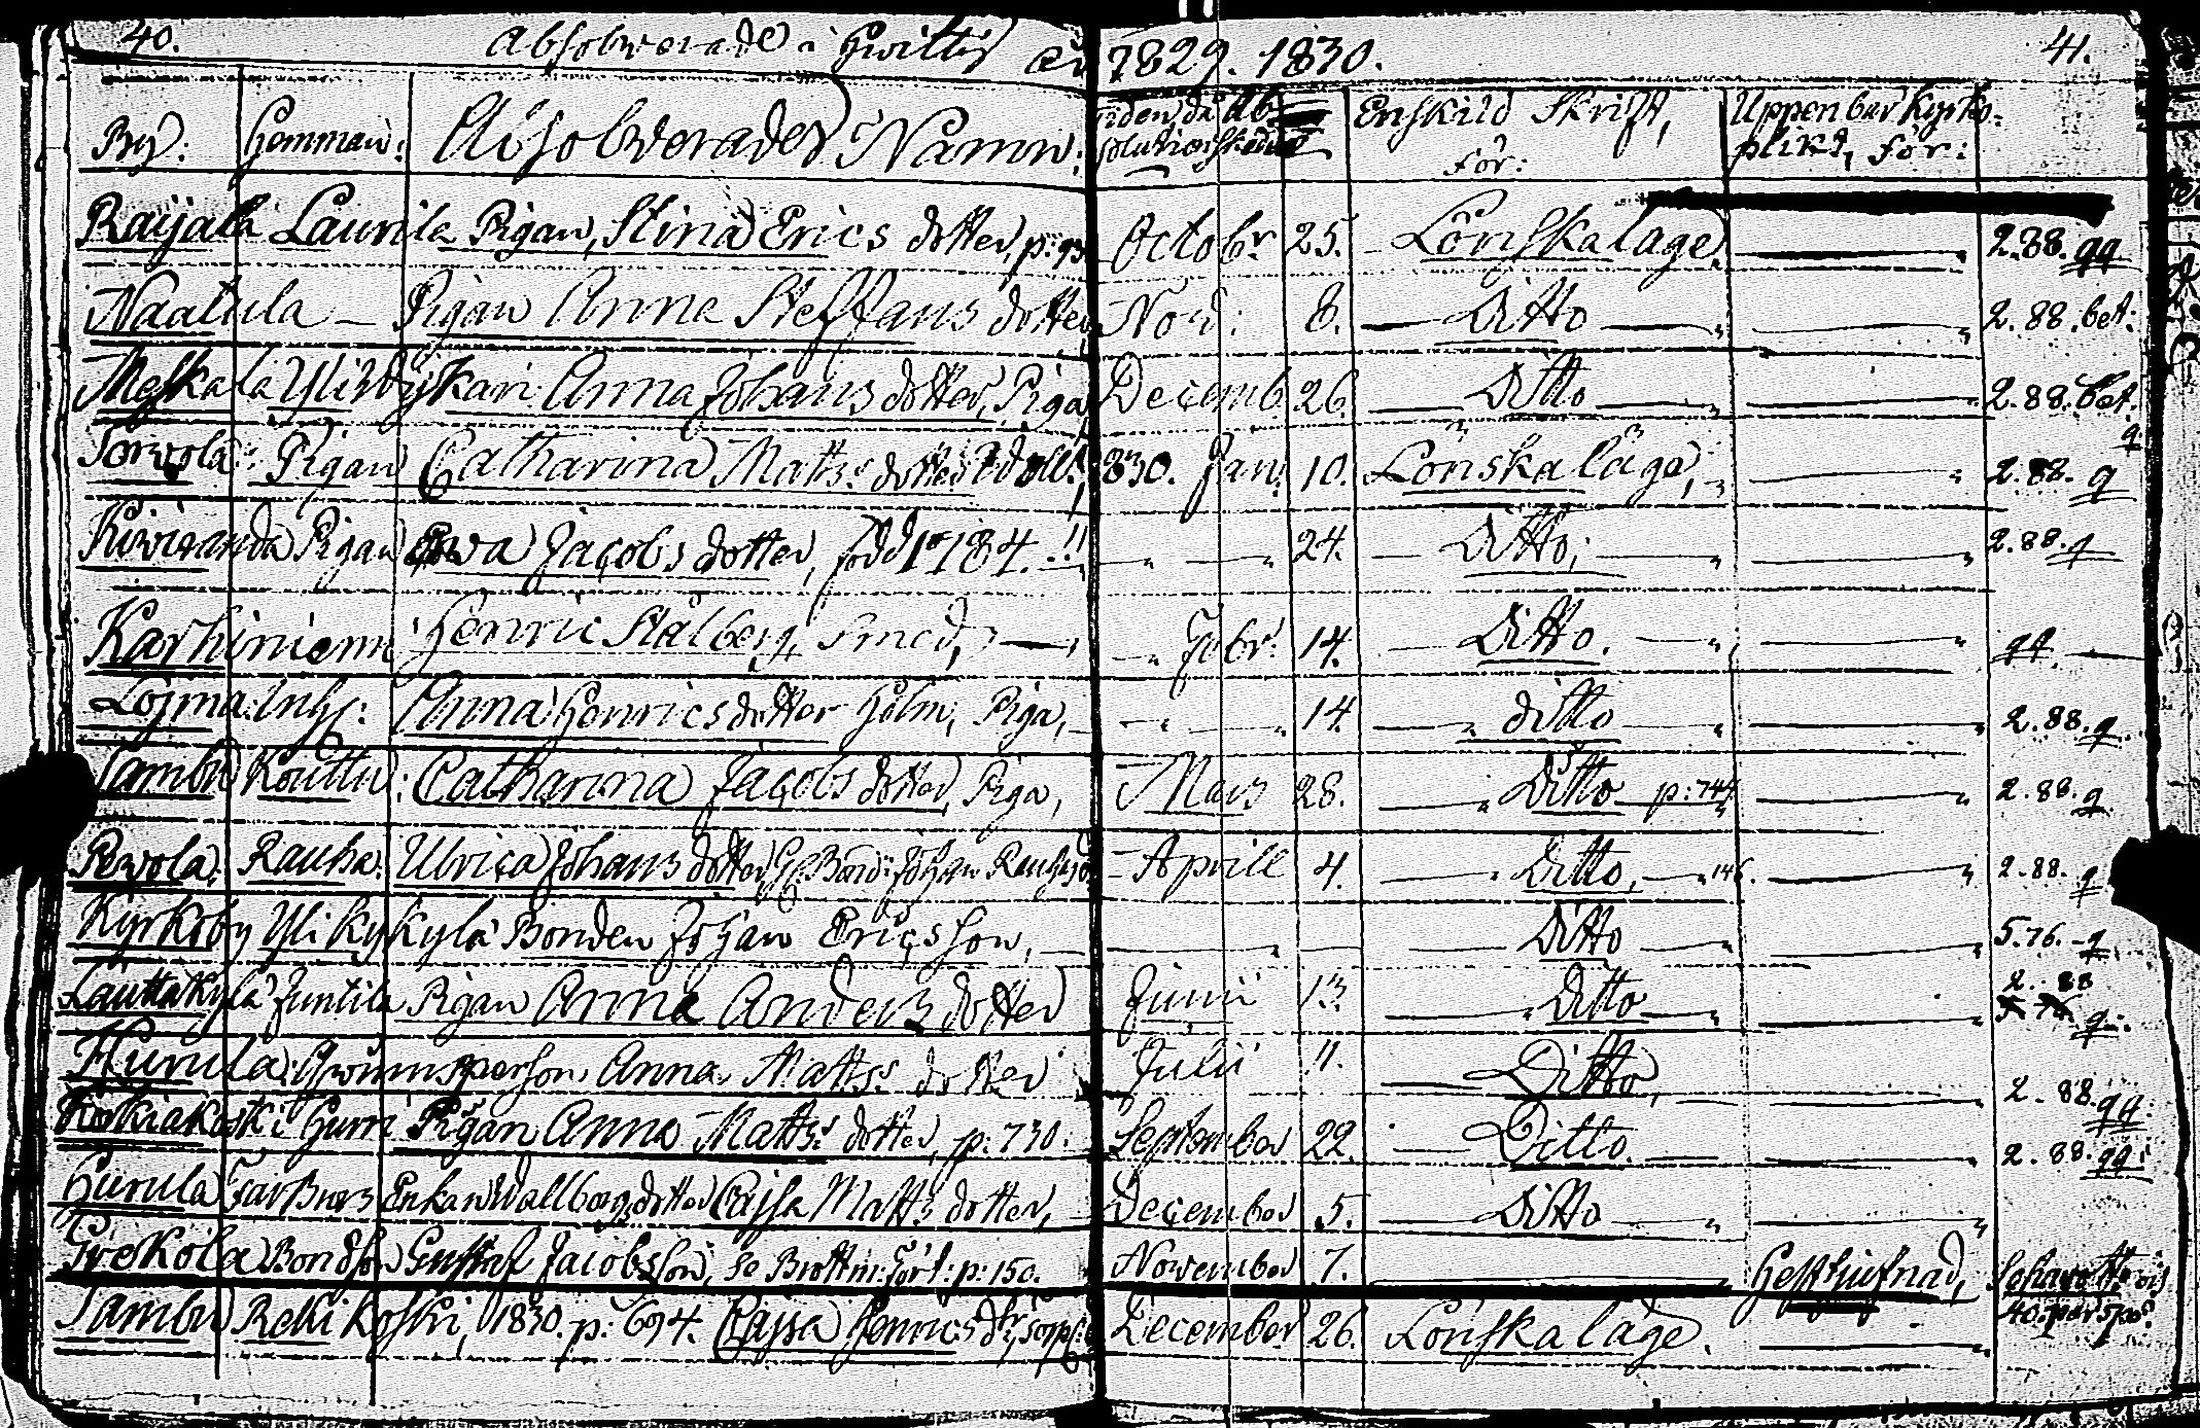 40. Absolverade i Hvittis år 1829. 1830. 41.
By: Hemman: Absolverades Namn: Tiden då Absolution skedde Enskild Skrift, för: Uppenbar Kyrkoplikt, för:
Raijala Laurila Pigan, Stina Erics dotter, p: 93 Octobr 25. Lönskaläge 2.88. qq
Naatula Pigan Anna Steffans dotter Nov: 8. Ditto 2.88. bet:
Meskala Anna Johans dotter, Piga Decemb 26. Ditto 2.88. bet.
Torvola: Pigan Catharina Matts dotter 830. Jan: 10. Lönskaläge, 2.88. q
Pigan Ewa Jacobs dotter, född 1784. 24. Ditto; 2.88. q
Karhiniemi Henric Stålberg, Smed, Febr: 14. Ditto. qq.
Lojma: Inhs: Anna Henrics dotter Holm, Piga, 14. ditto 2.88. q.
Sambu Kouttu: Catharina Jacobs dotter, Piga, Mars 28. Ditto p: 744 2.88. q
Pevola: Rauha: Ulrica Johans dotter, Johan Aprill 4. Ditto, 146. 2.88. q
Kyrkoby Yli Kykylä Bonden Johan Ericsson, Ditto 5.76. q.
Lauttakylä Juntila Pigan Anna Anders dotter Junii 13. Ditto 2.88 q.
Hurula: Anna Matts dotter Julii 11. Ditto, 2.88. qq:
Kiviniakoski Pigan Anna Matts dotter, p: 730: September 22. Ditto. 2.88. qq:
Hurula Enkan Wallborg dotter Cajsa Matts dotter, December 5. Ditto
Grekola Bondson Gustaf Jacobsson, Se p: 150. November 7. Häst tjufnad,
Sambu Reki Koski, 1830. p: 694. Cajsa Henrics dr, December 26. Lönskaläge. 40. par spö.